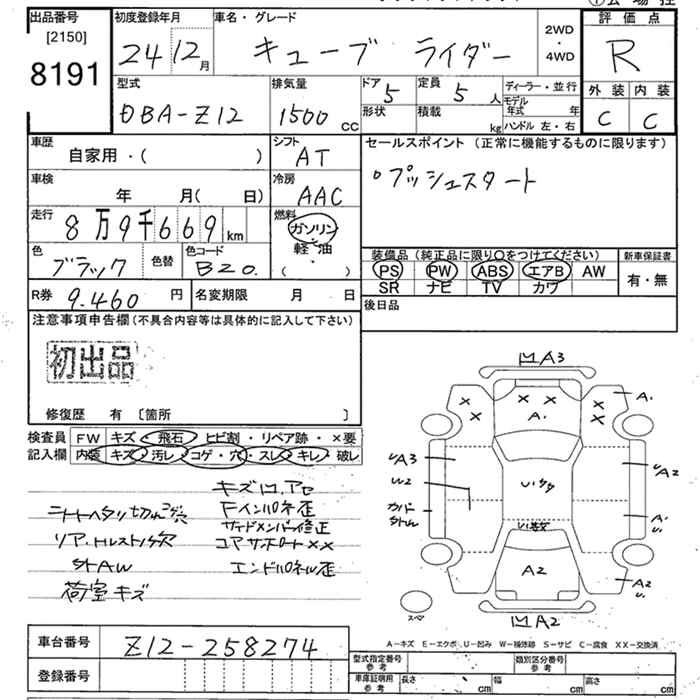 出品番号 初度登録年月 車名・グレード 評価点
[2150]
8191
24年12月 キューブ ライダー 2WD・4WD R
型式 排気量 ドア 定員 ディーラー・並行 外装 内装
DBA-Z12 1500cc 5 5人 モデル年式 年 C C
形状 積載 kg ハンドル 左・右
車歴 シフト セールスポイント（正常に機能するものに限ります）
自家用・（ ） AT 。プッシュスタート
車検 冷房
年 月（ 日） AAC
走行 燃料
8万9千669km ガソリン・軽油（ ）
色 色替 色コード 装備品（純正品に限り○をつけてください） 新車保証書
ブラック B20. PS PW ABS エアB AW 有・無
SR ナビ TV カワ
R券 9.460円 名変期限 月 日 後日品
注意事項申告欄（不具合内容等は具体的に記入して下さい）
初出品
修復歴 有〔箇所 〕
検査員 FW キズ・飛石・ヒビ割・リペア跡・×要
記入欄 内装 キズ・汚レ・コゲ・穴・スレ・キレ・破レ
Fインパネ歪
サイドメンバー修正
コアサポート××
エンドパネル歪
荷室キズ
A3
A.
A.
UA3
W2
UA2
カバー
A2
A2
A2
スペア
A-キズ E-エクボ U-凹み W-補修跡 S-サビ C-腐食 XX-交換済
車台番号 Z12-258274
登録番号
型式指定番号 参考 類別区分番号 参考
車庫証明用 参考 長さ cm 幅 cm 高さ cm